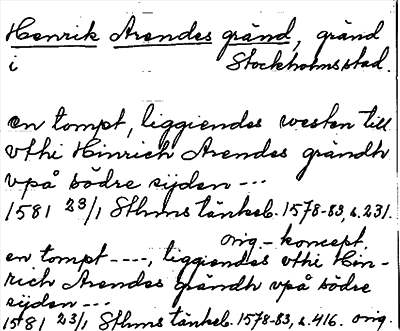 Henrik Arendes gränd, gränd
i Stockholms stad.
en tompt, liggiendes westen till
vthi Hinrich Arendes grändh
vpå södre sijden ---
1581 23/1 Sthms tänkeb. 1578-83, s. 231.
orig.-koncept.
en tompt ----, liggiendes vthi Hin-
rich Arendes grändh vpå södre
sijden ---
1581 23/1 Sthms tänkeb. 1578-83, s. 416. orig.